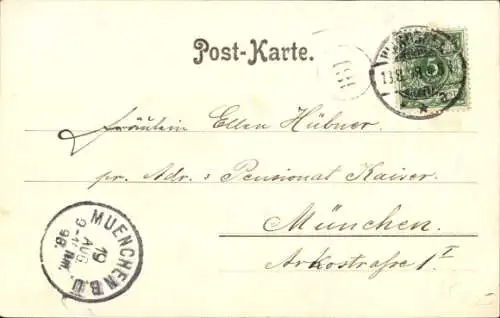 Post-Karte.
5
Fräulein Ellen Hübner.
pr. Adr.: Pensionat Kaiser.
München.
Arkostraße 1 I
MUENCHEN B.U.
19
AUG.
98.